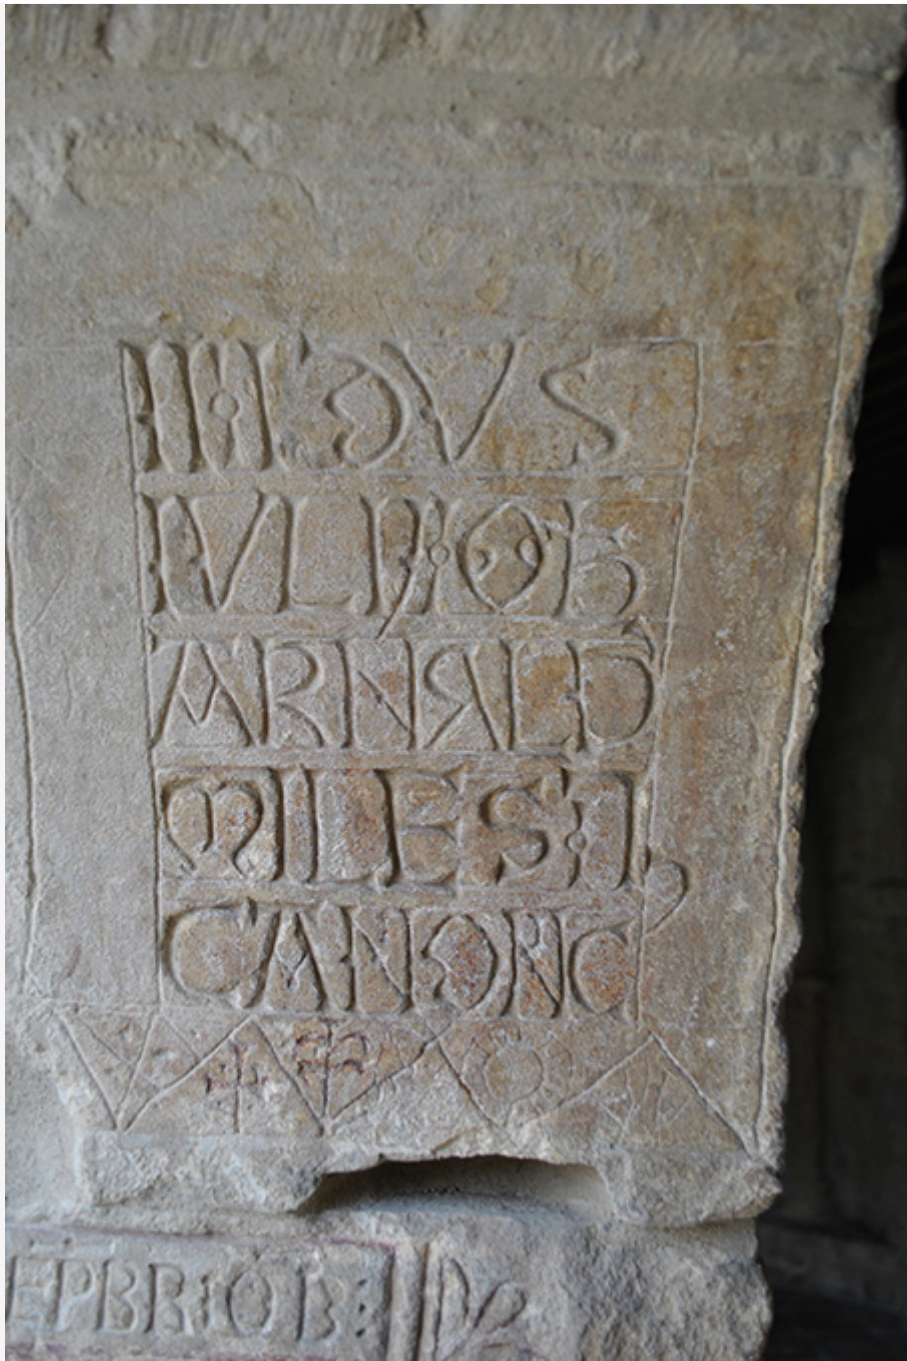 IIII IDVS
IVLII OB
ARNALD
MILES ⁊
CANONC
EPBR : OB :